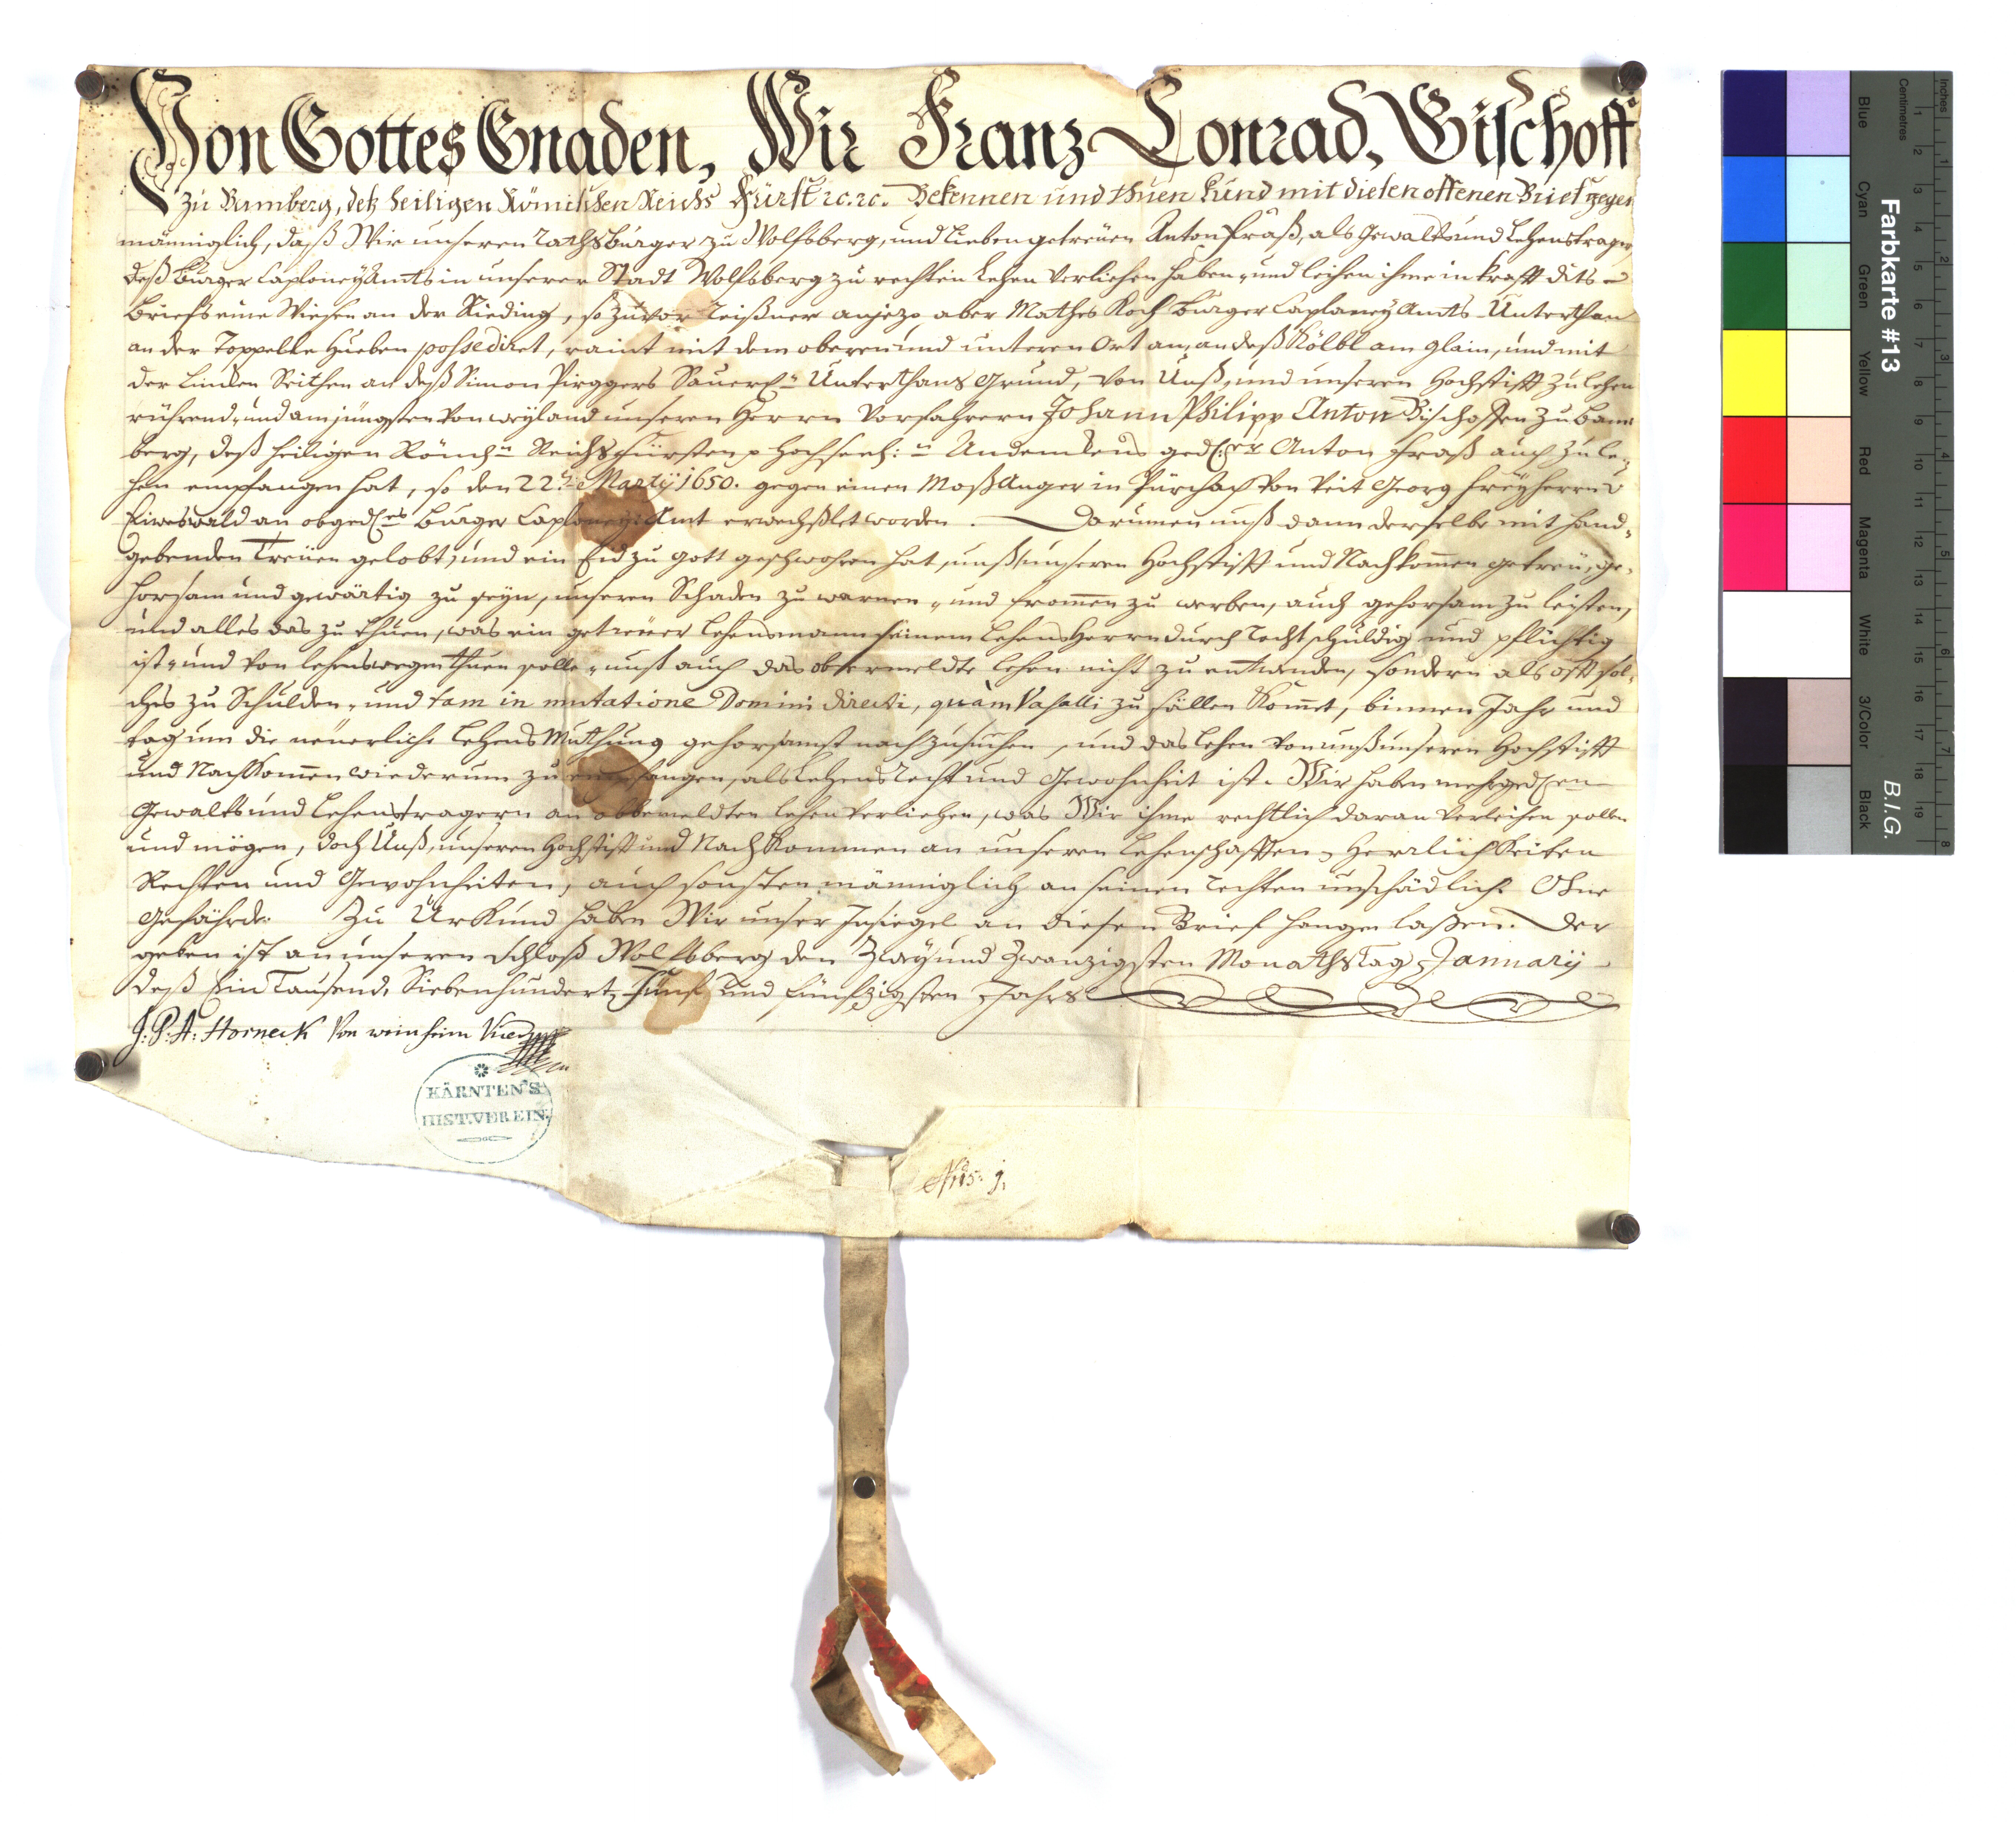 Von Gottes Gnaden, Wir Franz Conrad, Bischoff
zu Bamberg, deß heiligen Römischen Reichs Fürst rc. rc. Bekennen und thuen kund mit diesen offenen Brief gegen
männiglich, daß Wir unseren rathsburger zu Wolfsberg, und lieben getreüen Anton Fraß, als Gewalts und Lehenstrager
deß Burger Caploney Amts in unserer Stadt Wolfsberg zu rechten Lehen verliehen haben, und leihen ihme in krafft dits
Briefs eine Wiesen an der Rieding, so zuvor Leißner anjezo aber Mathes Koch Burger Caplaney Amts Unterthan
an der Toppelte Hueben possediret, raint mit dem oberen und unteren Ort an, an deß Kölbl am glain, und mit
der Linken Seithen an deß Simon Pirggers Unterthans Grund, von Unß, und unseren Hochstifft zu Lehen
rührend, und am jüngsten von weyland unseren Herrn Vorfahrern Johann Philipp Anton Bischoffen zu Bam
berg, deß heiligen Römch:n Reichs fürsten Hochseel: Andenkens Anton Fraß auch zu Le=
hen empfangen hat, so den 22t Martÿ 1650. gegen einen Moß Anger in Pürchach von Veit Georg freyherrn
an obged. Burger Caploney: Amt erwechßlet worden. Darumen unß dann derselbe mit hand=
gebenden Treüen gelobt, und ein Eid zu Gott geschwohren hat, unß, unseren Hochstifft und Nachkomen getreü, ge=
horsam und gewärtig zu seyn, unseren Schaden zu warnen, und fromen zu werben, auch gehorsam zu leisten,
und alles das zu thuen, was ein getreuer Lehensmann seinem Lehens Herrn durch recht schuldig und pflichtig
ist, und von lehenswegen thuen solle, unß auch das obvermeldte Lehen nicht zu entwenden, sondern als offt sol=
ches zu Schulden, und tam in mutatione Domini directi, quàm Vasalli zu fällen komet, binnen Jahr und
tag um die neuerliche Lehens Muthung gehorsamst nachzusuchen, und das Lehen von unß unseren Hochstifft
und Nachkomen wiederum zu empfangen, als Lehens recht und Gewohnheit ist. Wir haben mehrged
Gewalts und Lehenstragern an obbemeldten Lehen verliehen, was Wir ihme rechtlich daran verleihen sollen
und mögen, doch Unß, unseren Hochstift und Nachkommen an unseren Lehenschafften, Herrlichkeiten
Rechten und Gewohnheiten, auch sonsten männiglich an seinen rechten unschädlich. Ohne
Gefährde. Zu Urkund haben Wir unser Insiegel an diesen Brief hangen laßen. Der
geben ist an unseren Schloß Wolfsberg den Zwey und Zwanzigsten Monaths Tag January
deß Ein Tausend, Siebenhundert, Fünf und Fünfzigsten Jahrs
J: P: A: Horneck von weinheim
KÄRNTEN'S
HIST. VEREIN.
Nro. 1.
Farbkarte #13
B.I.G.
Inches
Centimetres
Blue
Cyan
Green
Yellow
Red
Magenta
White
3/Color
Black